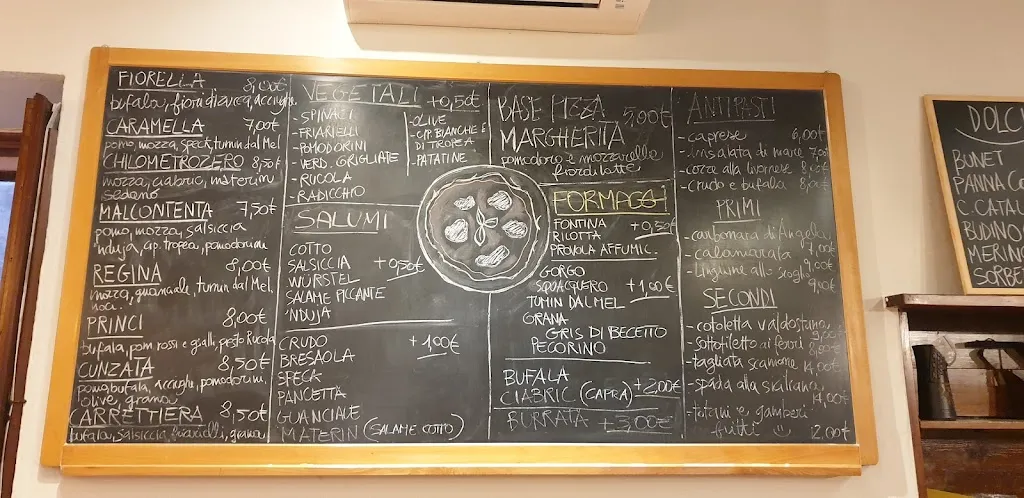 FIORELLA 8,00€
bufala, fiori di zucca, acciughe
CARAMELLA 7,00€
pomo, mozza, speck, tumin dal Mel
CHILOMETROZERO 8,50€
mozza, ciabric, materim
sedano
MALCONTENTA 7,50€
pomo, mozza, salsiccia
nduja, cip. tropea, pomodorini
REGINA 8,00€
mozza, guanciale, tumin dal Mel,
noci.
PRINCI 8,00€
bufala, pom rossi e gialli, pesto Rucola
CUNZATA 8,50€
pomo, bufala, acciughi, pomodorini,
olive, grana
CARRETTIERA 8,50€
bufala, salsiccia, friarielli, grana
VEGETALI +0,50€
- SPINACI
- FRIARIELLI
- POMODORINI
- VERD. GRIGLIATE
- RUCOLA
- RADICCHIO
- OLIVE
- CIP. BIANCHE E
DI TROPEA
- PATATINE
SALUMI
COTTO
SALSICCIA +0,50€
WÜRSTEL
SALAME PICCANTE
'NDUJA
CRUDO +1,00€
BRESAOLA
SPECK
PANCETTA
GUANCIALE
MATERIN (SALAME COTTO)
BASE PIZZA 5,00€
MARGHERITA
pomodoro e mozzarella
fiordilatte
FORMAGGI
FONTINA +0,50€
RICOTTA
PROVOLA AFFUMIC.
GORGO
SQUACQUERO +1,00€
TUMIN DAL MEL
GRANA
GRIS DI BECETTO
PECORINO
BUFALA
CIABRIC (CAPRA) +2,00€
BURRATA +3,00€
ANTIPASTI
- caprese 6,00€
- insalata di mare 7,00€
- cozze alla livornese 8,00€
- crudo e bufala 8,00€
PRIMI
- carbonara di Angelo
7,00€
- calamarata 9,00€
- linguine allo scoglio
9,00€
SECONDI
- cotoletta valdostana
- sottofiletto ai ferri
- tagliata scamone 14,00€
- spada alla siciliana
14,00€
- totani e gamberi
fritti 12,00€
DOLCI
BUNET
PANNA Co
C. CATAL
BUDINO
MERING
SORBE